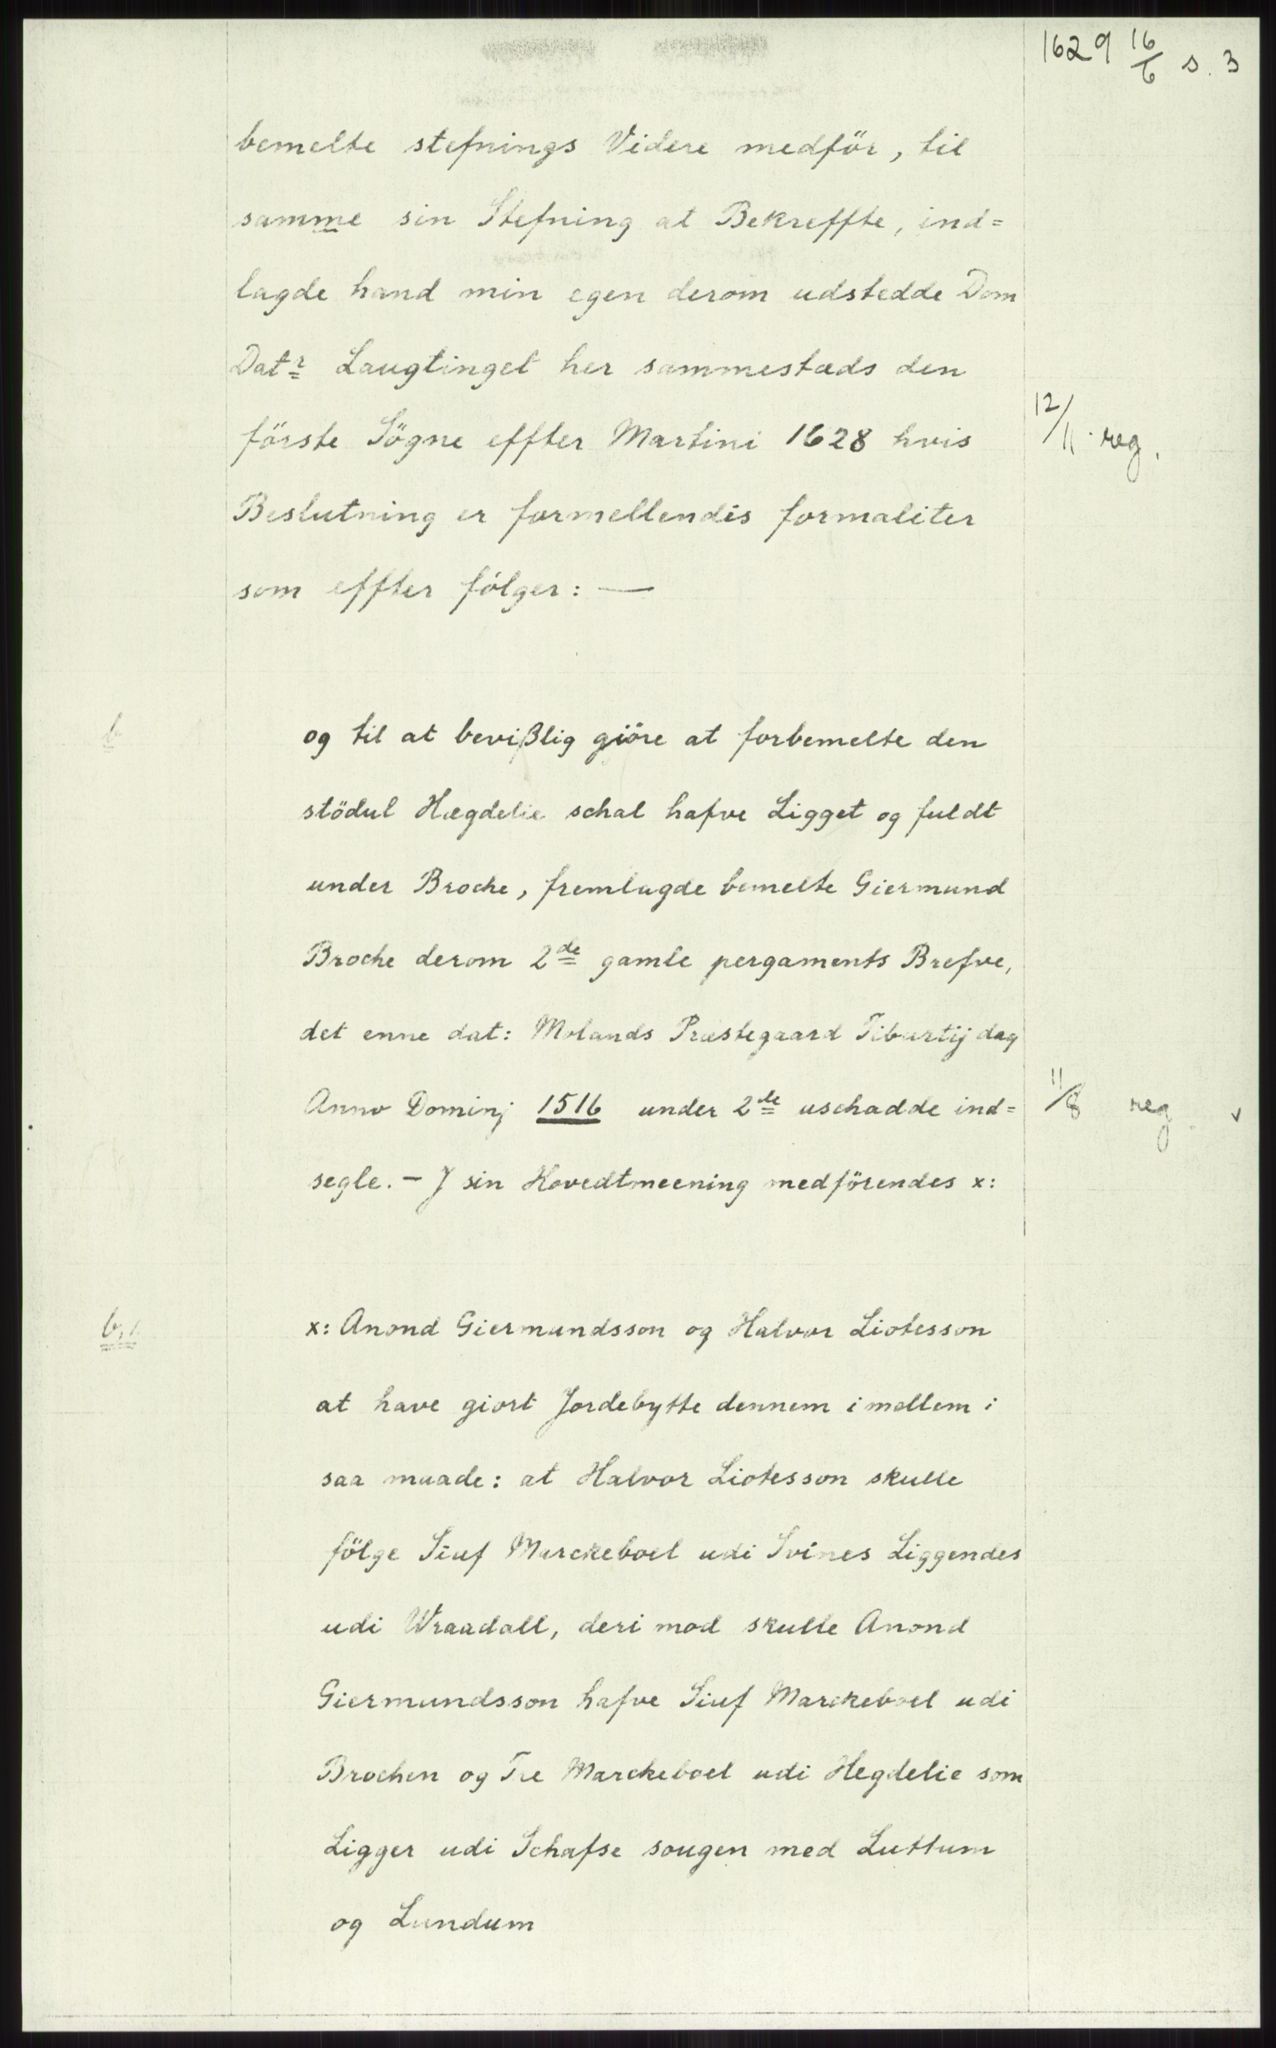 1629 16/6 s. 3
bemelte stefnings Videre medför, til
samme sin Stefning at Bekreffte, ind=
lagde hand min egen derom udstedde Dom
Datr Laugtinget her sammestæds den
förste Sögne effter Martini 1628 hvis
12/11. reg.
Beslutning er formellendis formaliter
som effter fölger: —
b
og til at bevißlig giöre at forbemelte den
stödul Hægdelie schal hafve Ligget og fuldt
under Broche, fremlagde bemelte Giermund
Broche derom 2de gamle pergaments Brefve,
det enne dat: Molands Præstegaard Tiburtij dag
Anno Dominj 1516 under 2de uschadde ind=
11/8 reg v
segle. – J sin Hovedtmeening medförendes x:
b.1.
x: Anond Giermundsson og Halvor Liotesson
at have giort Jordebytte dennem imellem i
saa maade: at Halvor Liotesson skulle
fölge Siuf Marckeboel udi Svines Liggendes
udi Wraadall, derimod skulle Anond
Giermundsson hafve Siuf Marckeboel udi
Brochen og Tre Marckeboel udi Hegdelie som
Ligger udi Schafse sougen med Luttum
og Lundum